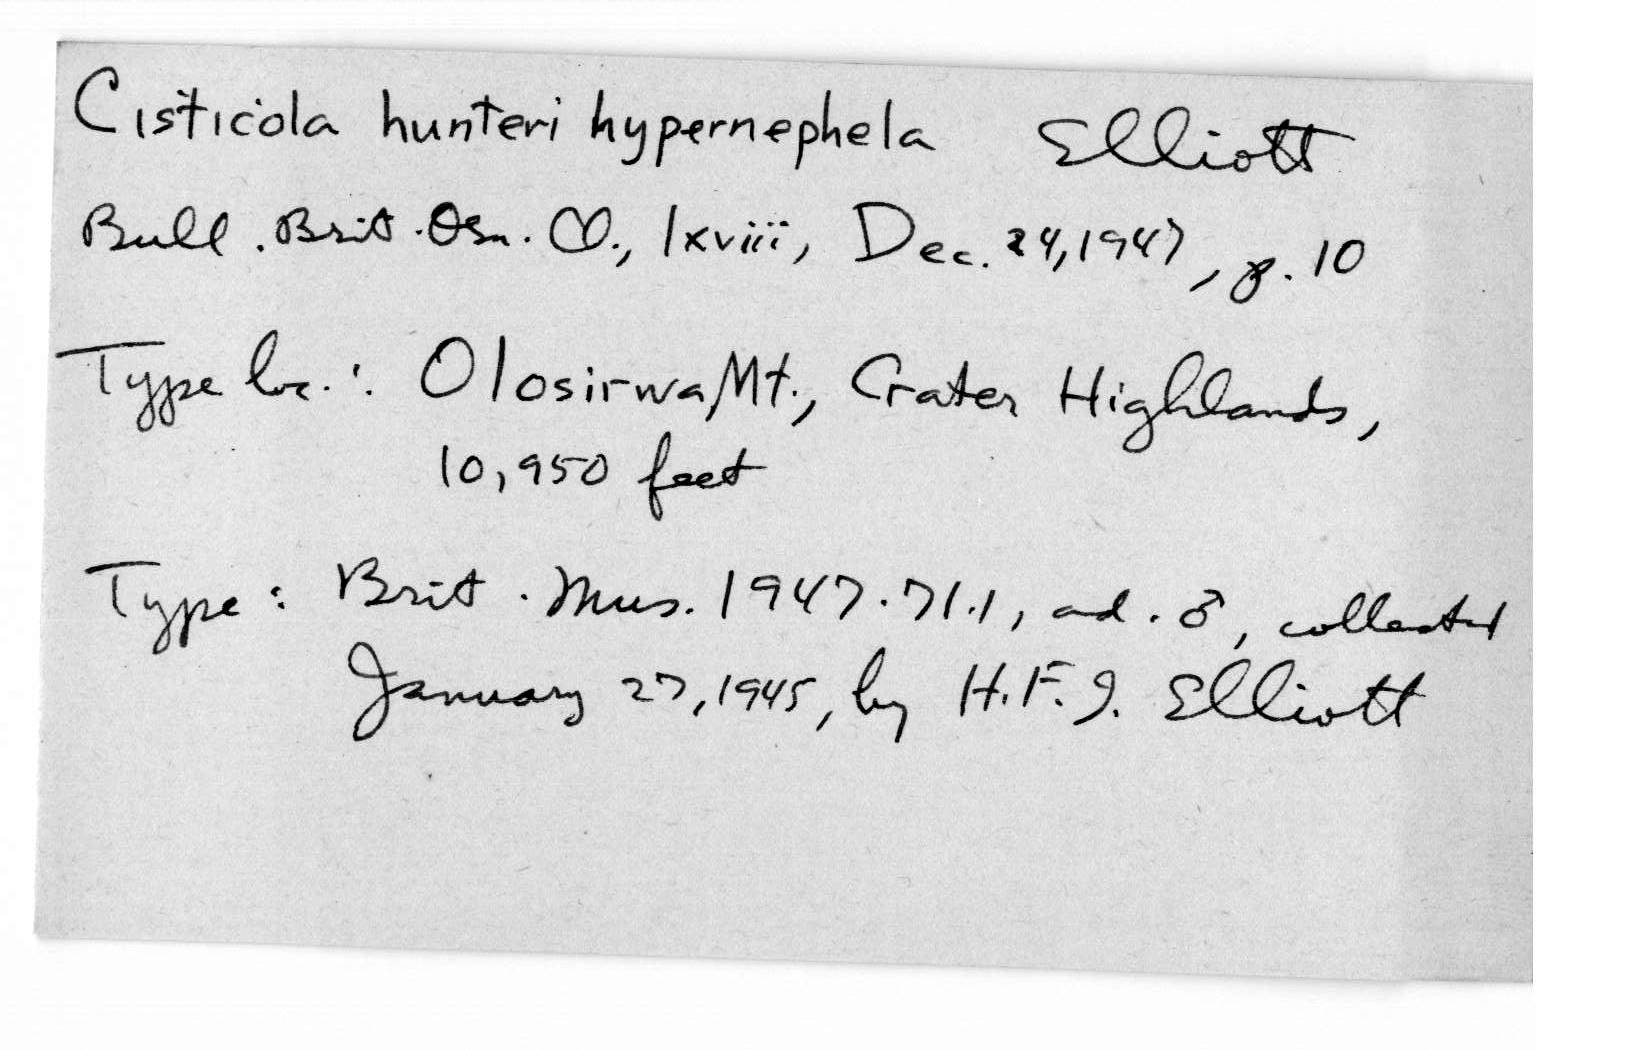 Cisticola hunteri hypernephela Elliott
Bull. Brit. Orn. Cl., lxviii, Dec. 24, 1947, p. 10
Type loc.: Olosirwa Mt., Crater Highlands,
10,950 feet
Type: Brit. Mus. 1947.71.1, ad. ♂, collected
January 27, 1945, by H.F.I. Elliott